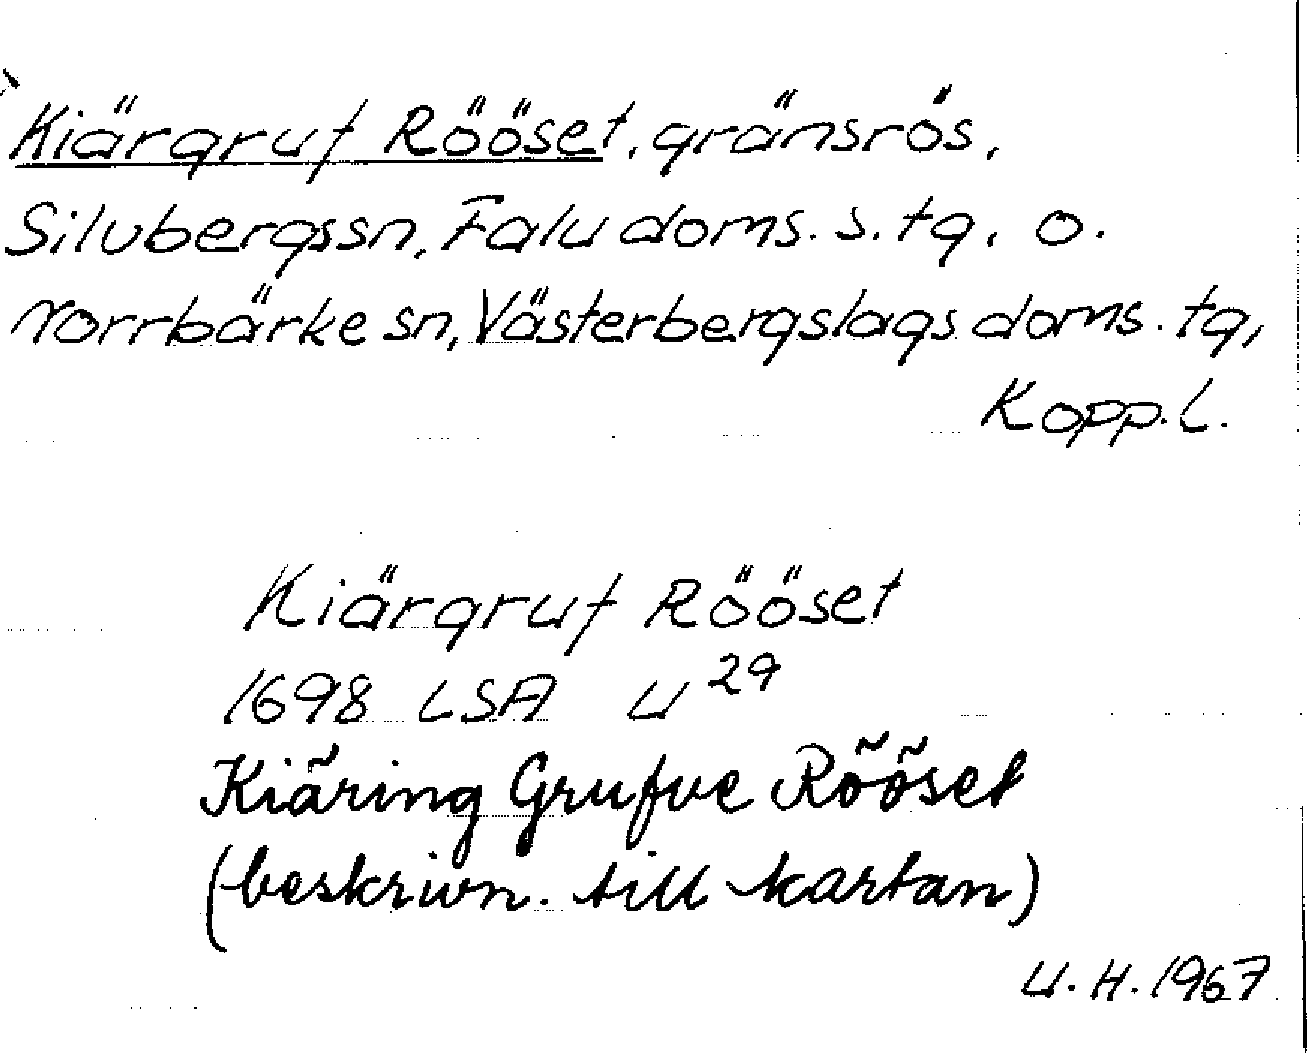 Kiärgruf Rööset, gränsrös,
Silvbergssn, Falu doms. s. tg, o.
Norrbärke sn, Västerbergslags doms. tg,
Kopp. l.
Kiärgruf Rööset
1698 LSA U 29
Kiäring Grufve Rööset
(beskrivn. till kartan)
U. H. 1967